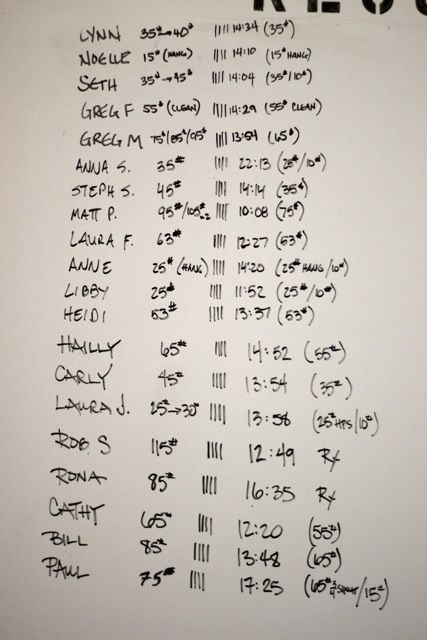 LYNN 35#→40# |||| 14:34 (35#)
NOELLE 15# (HANG) |||| 14:10 (15# HANG)
SETH 35#→45# |||| 14:04 (35#/10#)
GREG F 55# (CLEAN) |||| 14:29 (55# CLEAN)
GREG M 75#/85#/95# |||| 13:54 (65#)
ANNA S. 35# |||| 22:13 (25#/10#)
STEPH S. 45# |||| 14:14 (35#)
MATT P. 95#/105# |||| 10:08 (75#)
LAURA F. 63# |||| 12:27 (53#)
ANNE 25# (HANG) |||| 14:20 (25# HANG/10#)
LIBBY 25# |||| 11:52 (25#/10#)
HEIDI 53# |||| 13:37 (53#)
HAILLY 65# |||| 14:52 (55#)
CARLY 45# |||| 13:54 (35#)
LAURA J. 25#→30# |||| 13:58 (25# HPS/10#)
ROB S 115# |||| 12:49 Rx
RONA 85# |||| 16:35 Rx
CATHY 65# |||| 12:20 (55#)
BILL 85# |||| 13:48 (65#)
PAUL 75# |||| 17:25 (65# /15#)